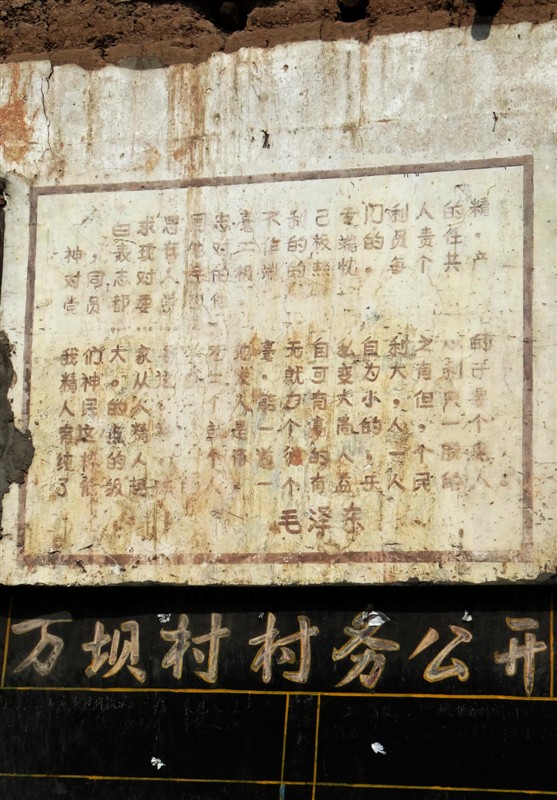 白求恩同志毫不利己专门利人的精
神,表现在他对工作的极端的负责任,
对同志对人民的极端的热忱。每个共产
党员都要学习他。
我们大家要学习他毫无自私自利之心的
精神。从这点出发,就可以变为大有利于
人民的人。一个人能力有大小,但只要
有这点精神,就是一个高尚的人,一个
纯粹的人,一个有道德的人,一个脱离
了低级趣味的人,一个有益于人民的人。
毛泽东
万坝村村务公开